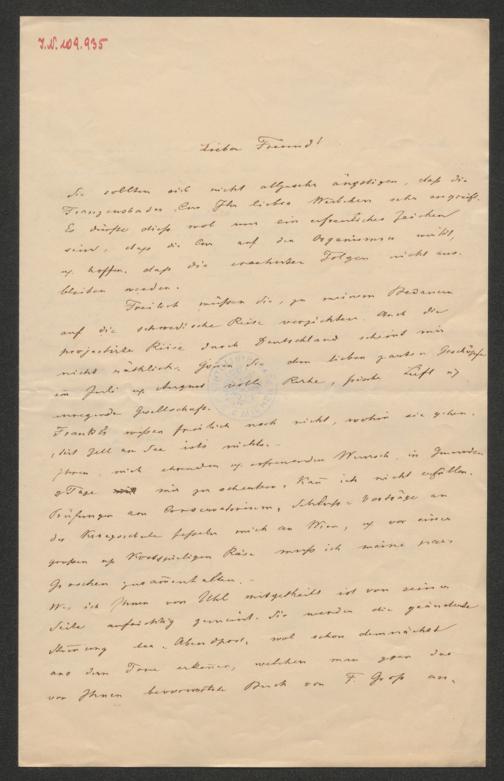 J.N. 109.935
Lieber Freund!
Sie sollten sich nicht allzusehr ängstigen, daß die
Franzensbader Cur Ihr liebes Weibchen sehr angreift.
Es dürfte dieß wol nur ein erfreuliches Zeichen
sein, daß die Cur auf den Organismus wirkt,
u. hoffen, daß die Folgen nicht aus-
bleiben werden.
Freilich müssen Sie, zu meinem Bedauern
auf die schwedische Reise verzichten. Auch die
projectirte Reise durch Deutschland scheint mir
nicht räthlich. Gönnen Sie dem lieben zarten Geschöpfe
im Juli u. August volle Ruhe, frische Luft u.
anregende Gesellschaft.
Frankls wissen freilich noch nicht, wohin sie gehen.
Mit Zell am See ists nichts.
Ihren, mich ehrenden u. erfreuenden Wunsch, in Gmunden
2 Tage mir zu schenken, kann ich nicht erfüllen.
Prüfungen am Conservatorium, Schluss-Vorträge an
der Kriegsschule fesseln mich an Wien, u. vor einer
großen u. kostspieligen Reise muß ich meine paar
Groschen zusammenhalten.
Was ich Ihnen von Uhl mitgetheilt ist von seiner
Seite aufrichtig gemeint. Sie werden die geänderte
Stimmung der Abendpost, wol schon demnächst
aus dem Tone erkennen, welchen man gegen das
von Ihnen bevorwortete Buch von F. Groß an-